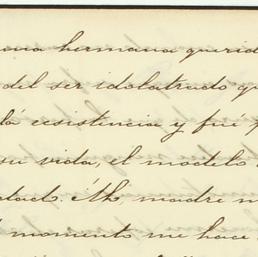 hermana querid
del ser idolatrado q
la ecsistencia y fué
su vida, el modelo
dad. Ah madre m
momento me hace